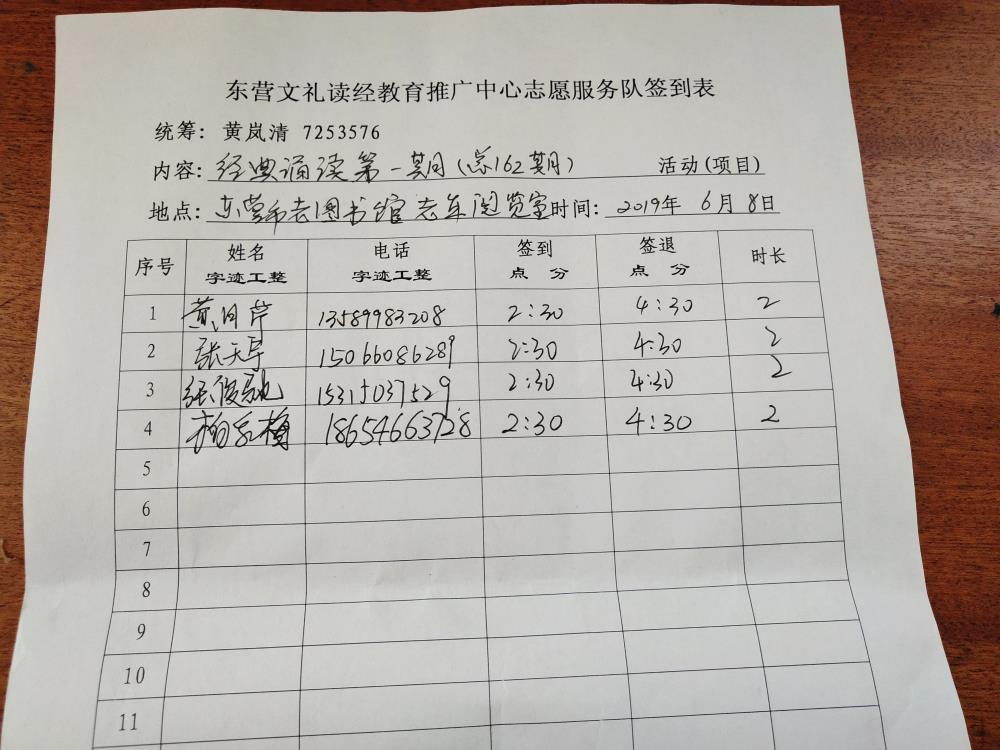 东营文礼读经教育推广中心志愿服务队签到表
统筹：黄岚清 7253576
内容：经典诵读第一期（总162期） 活动(项目)
地点：东营市老图书馆老年阅览室 时间：2019年 6月 8日
序号 姓名 字迹工整 电话 字迹工整 签到 点 分 签退 点 分 时长
1 黄月芹 13589983208 2:30 4:30 2
2 张天宇 15066086289 2:30 4:30 2
3 张俊驰 15315037529 2:30 4:30 2
4 柏 梅 18654663728 2:30 4:30 2
5
6
7
8
9
10
11